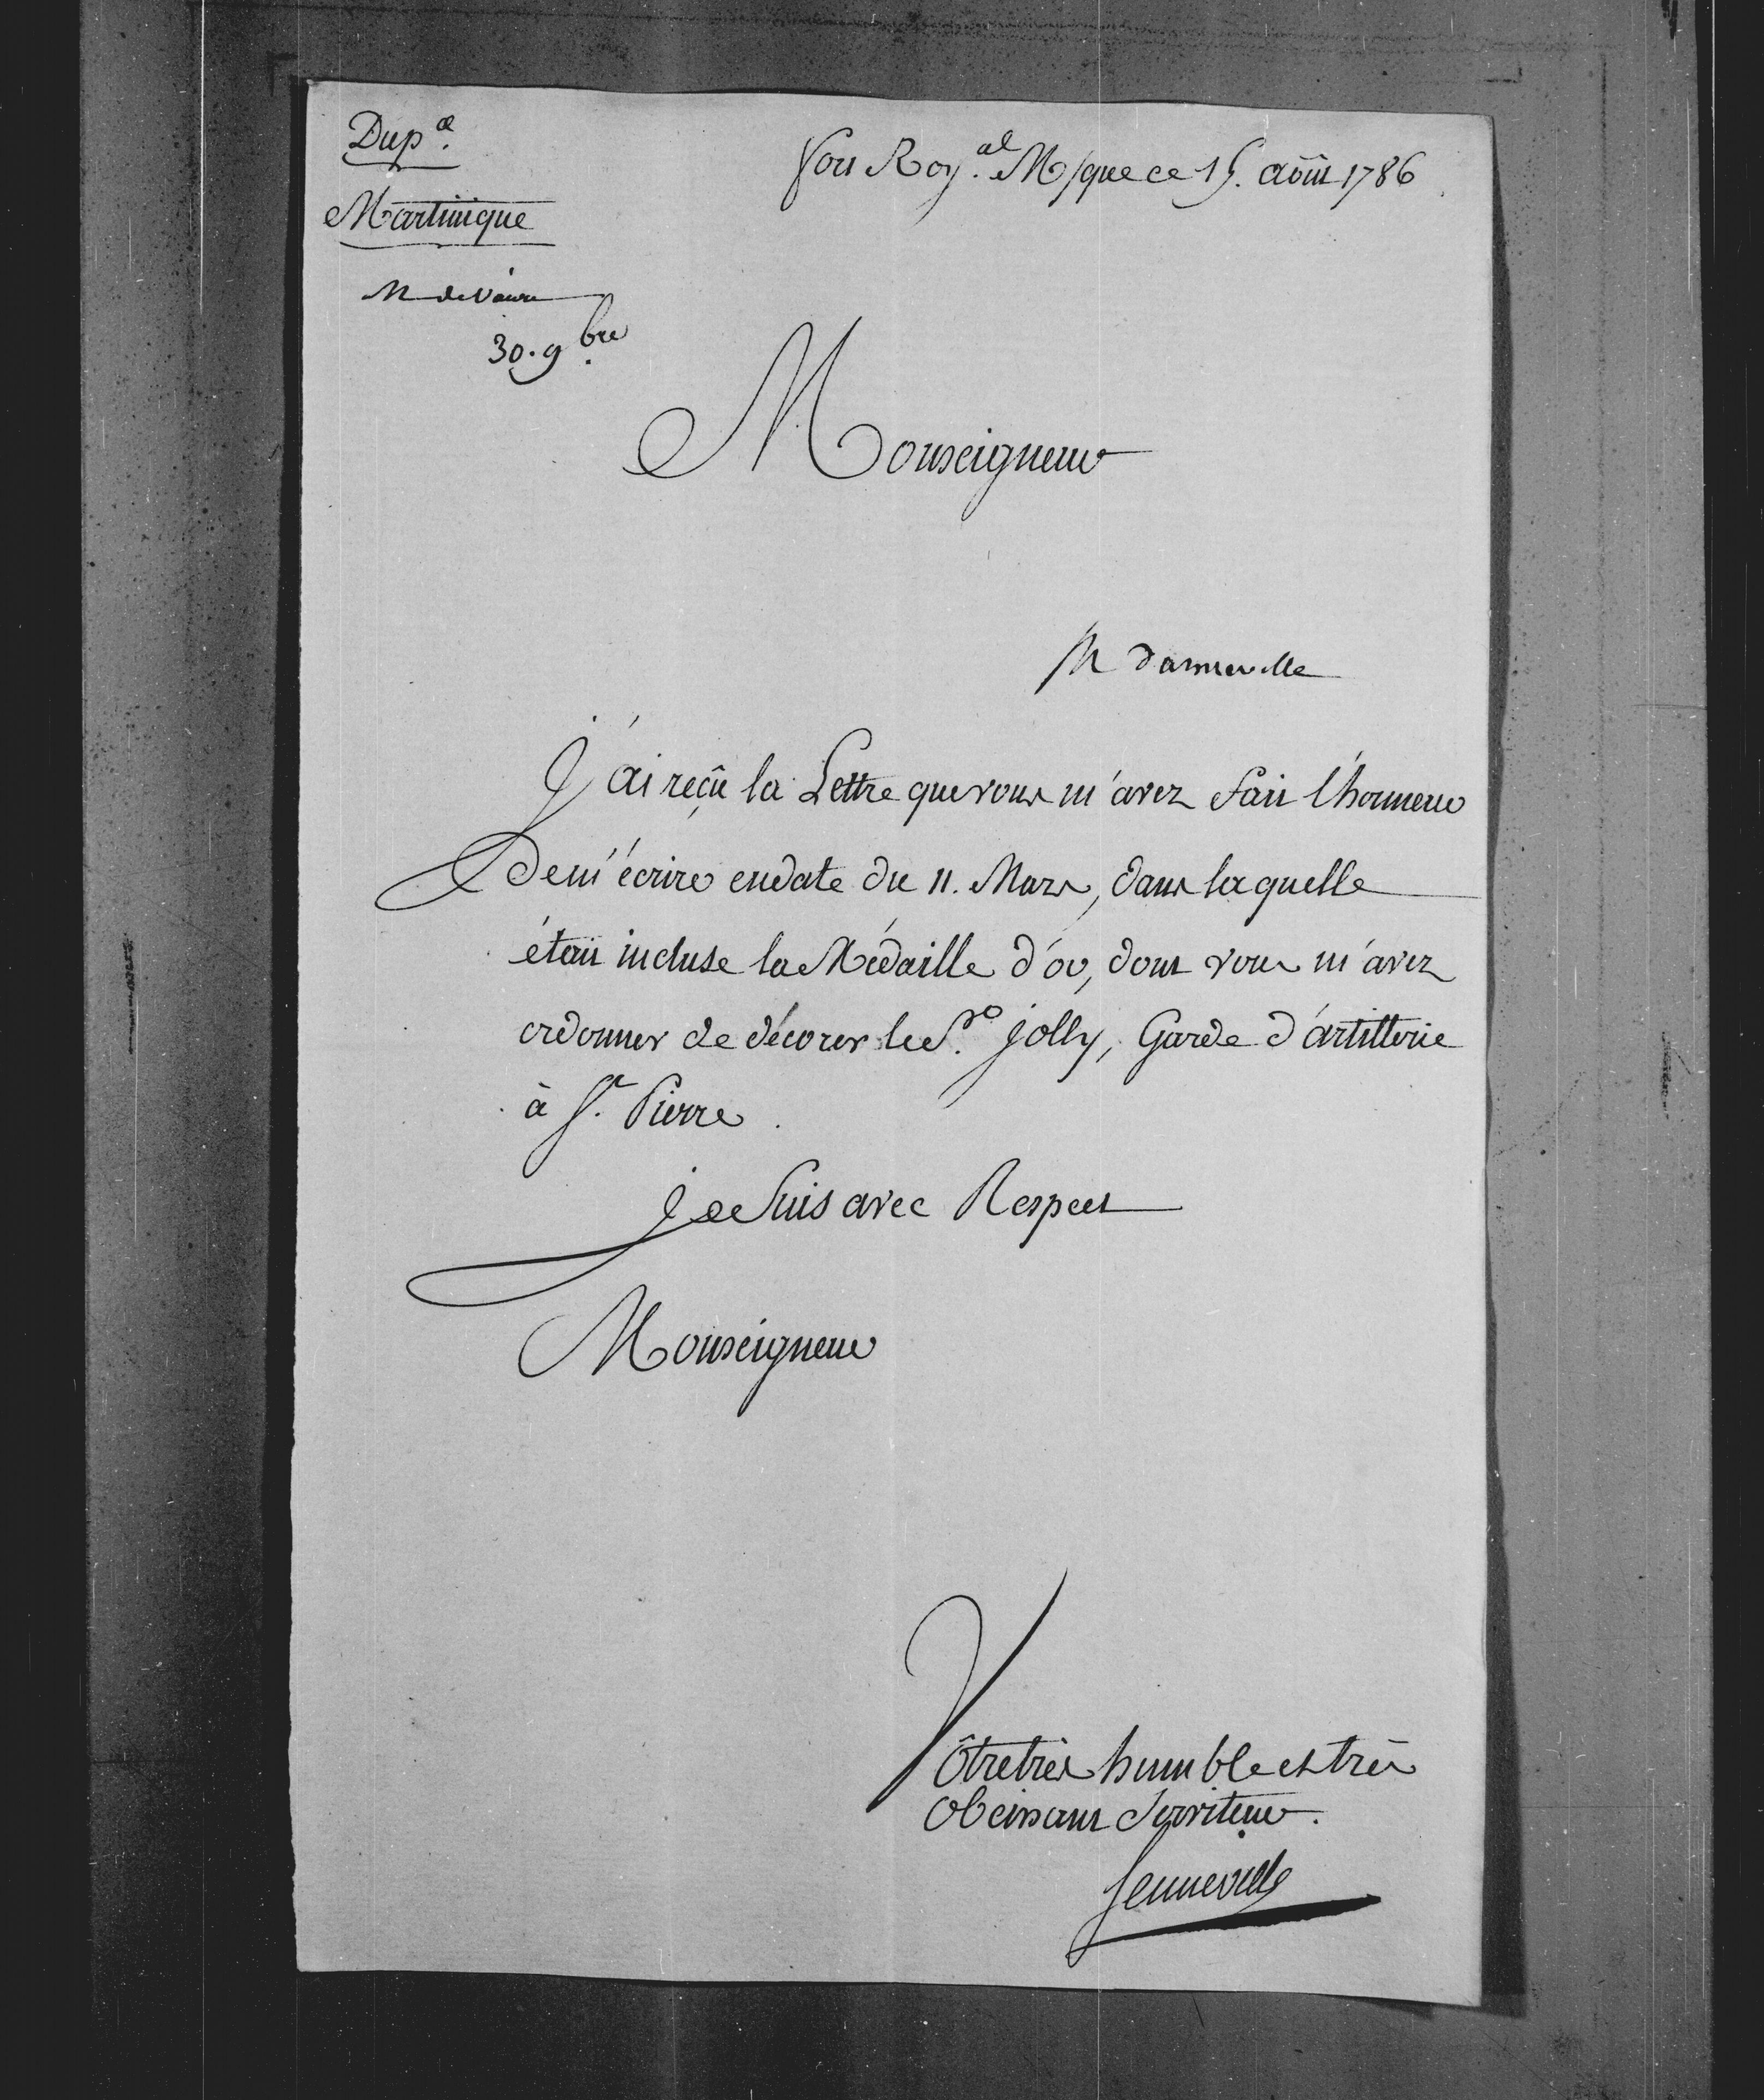 Dup.a
Martinique
M de Vaivre
30. 9bre
fort Roy.al M/que ce 15. août 1786
Monseigneur
M danneville
J'ai reçû la Lettre que vous m'avez fait l'honneur
de m'écrire en date du 11. Mars, dans laquelle
était incluse la Médaille d'or, dont vous m'avez
ordonner de décorer le S.r jolly, Garde d'artillerie
à S.t Pierre.
Je suis avec Respect
Monseigneur
Vôtre très humble et très
obeissant Serviteur.